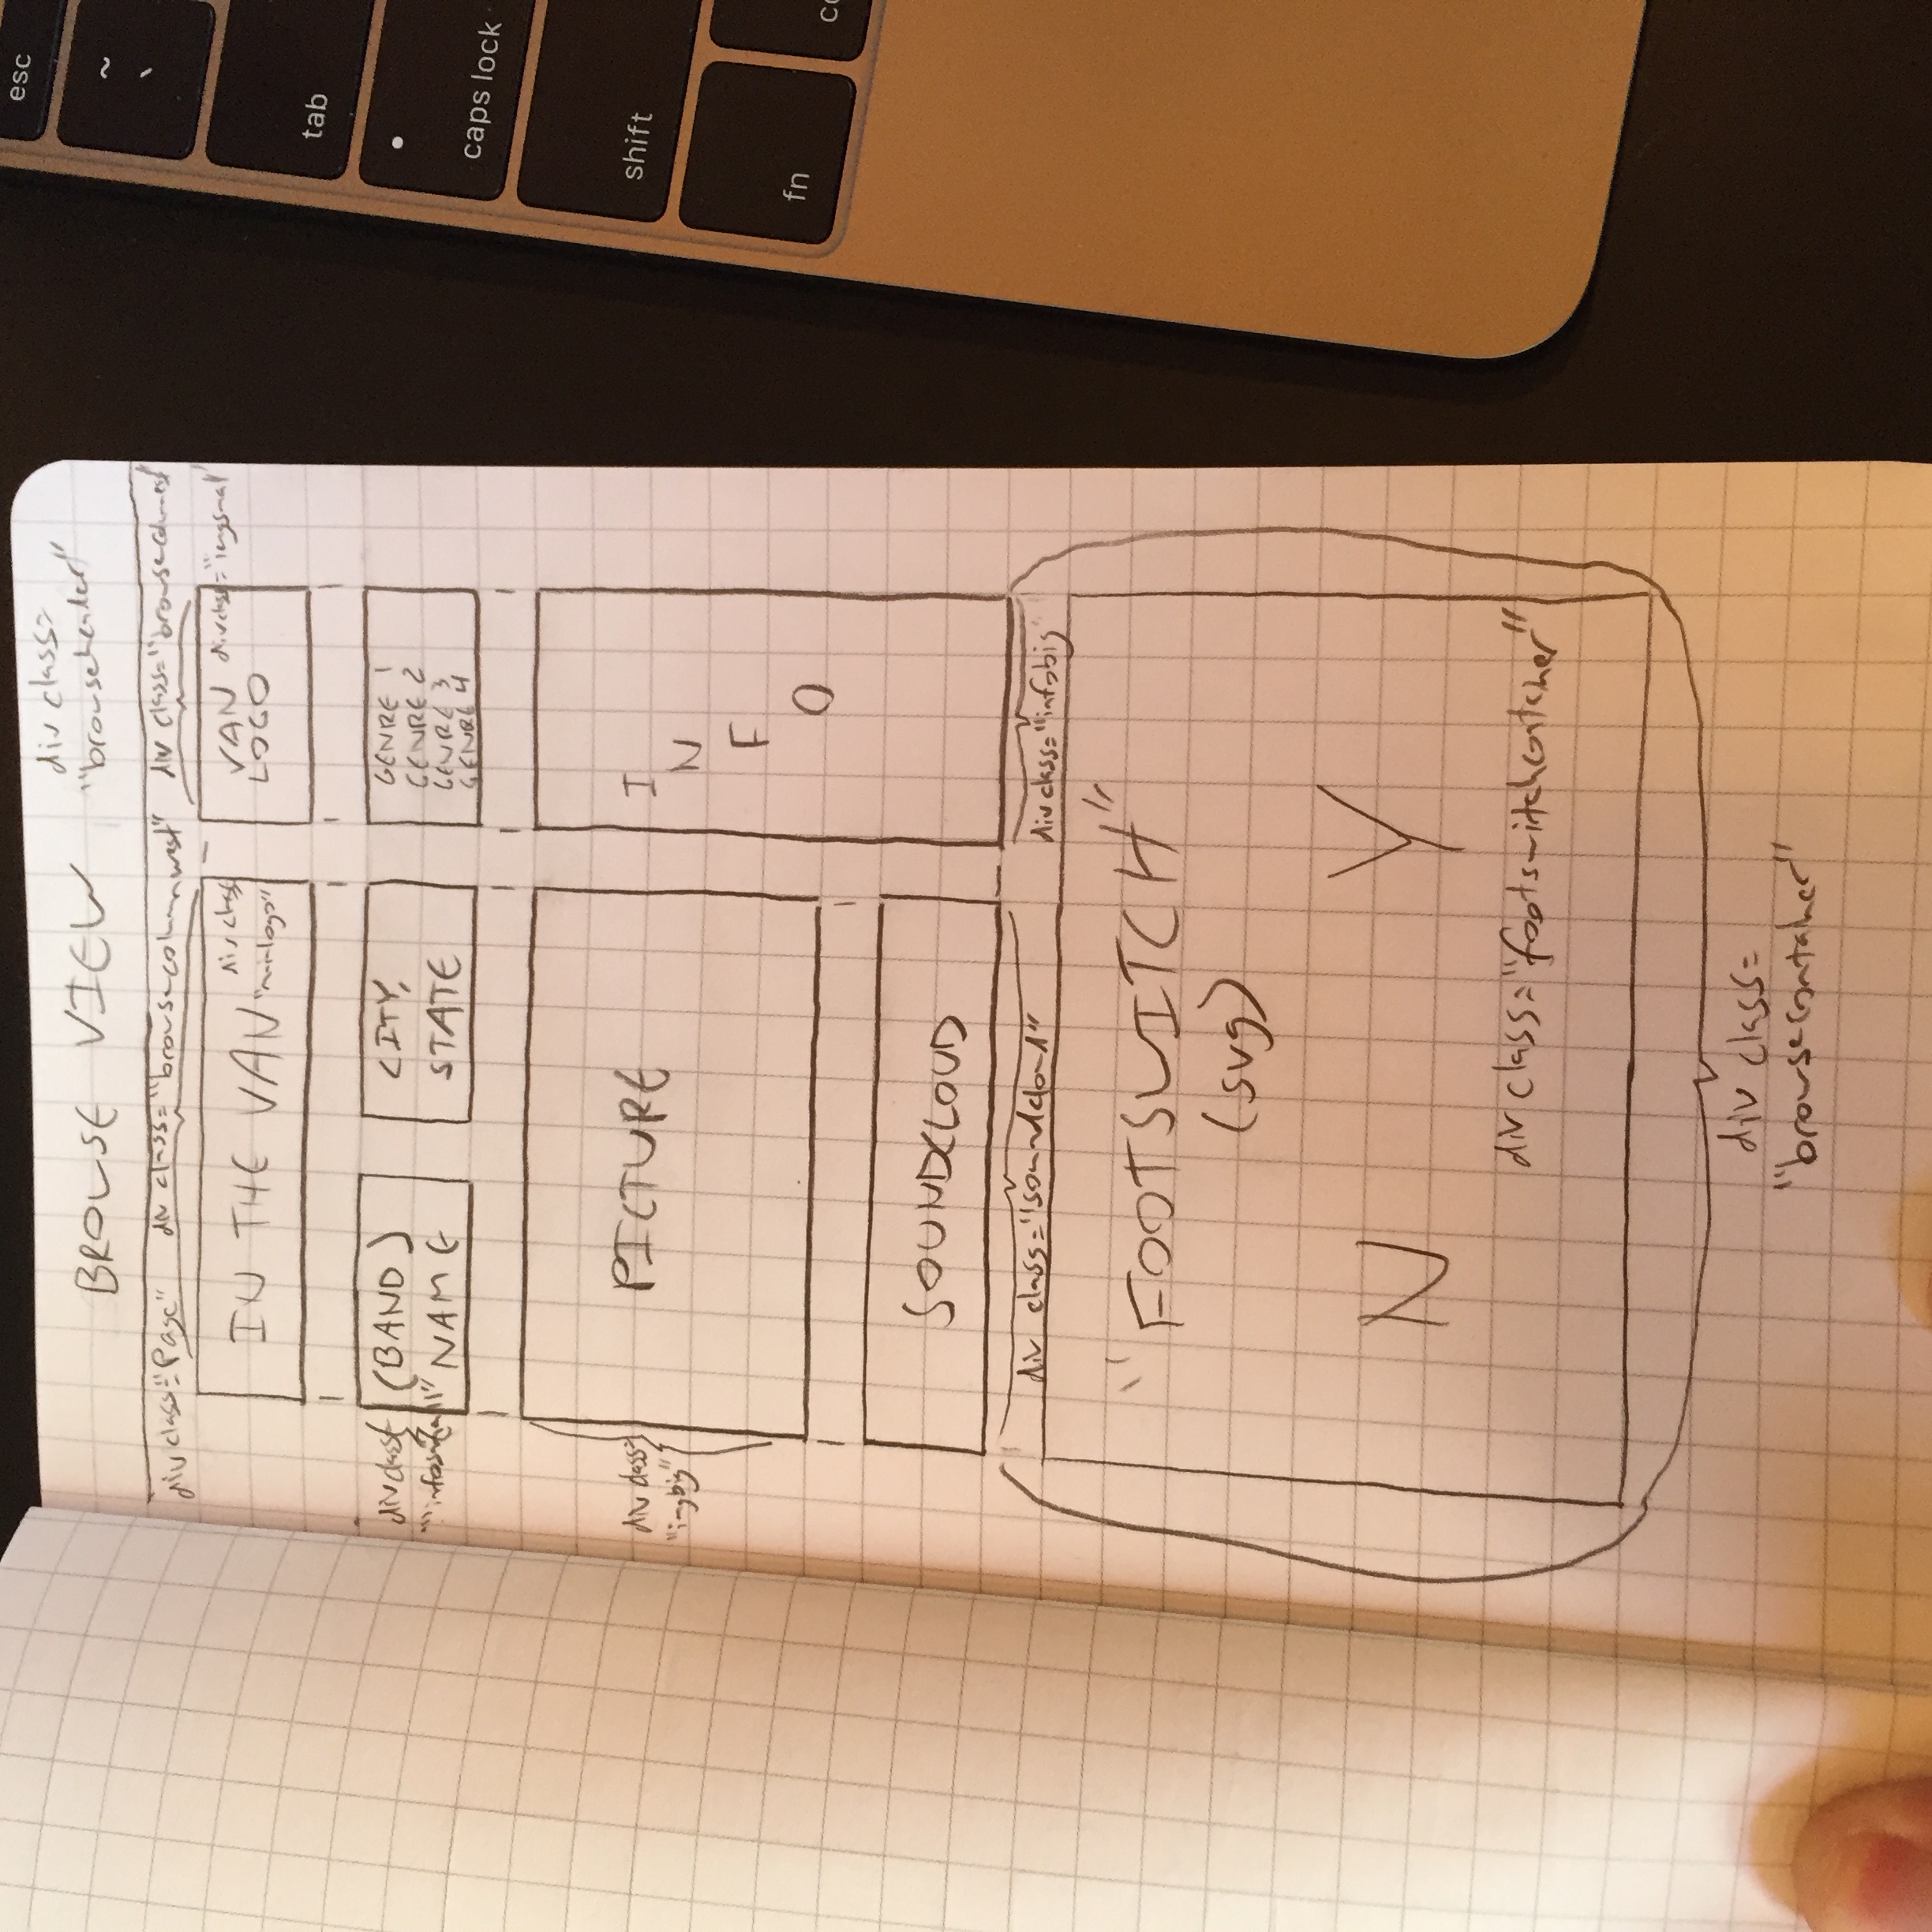 BROWSE VIEW
div class=
"browseheader"
div class="Page"
div class="browsecolumnwest"
div class="browsecolumneast"
IN THE VAN
div class
VAN
LOGO
div class="imgsmall"
div class
"infosmall"
(BAND)
NAME
CITY,
STATE
GENRE 1
GENRE 2
GENRE 3
GENRE 4
div class=
"imgbig"
PICTURE
I
N
F
O
SOUNDCLOUD
div class="soundcloud"
div class="infobig
"FOOTSWITCH"
(svg)
N
Y
div class="footswitchcontainer"
div class=
"browsecontainer"
esc
~
`
tab
caps lock
shift
fn